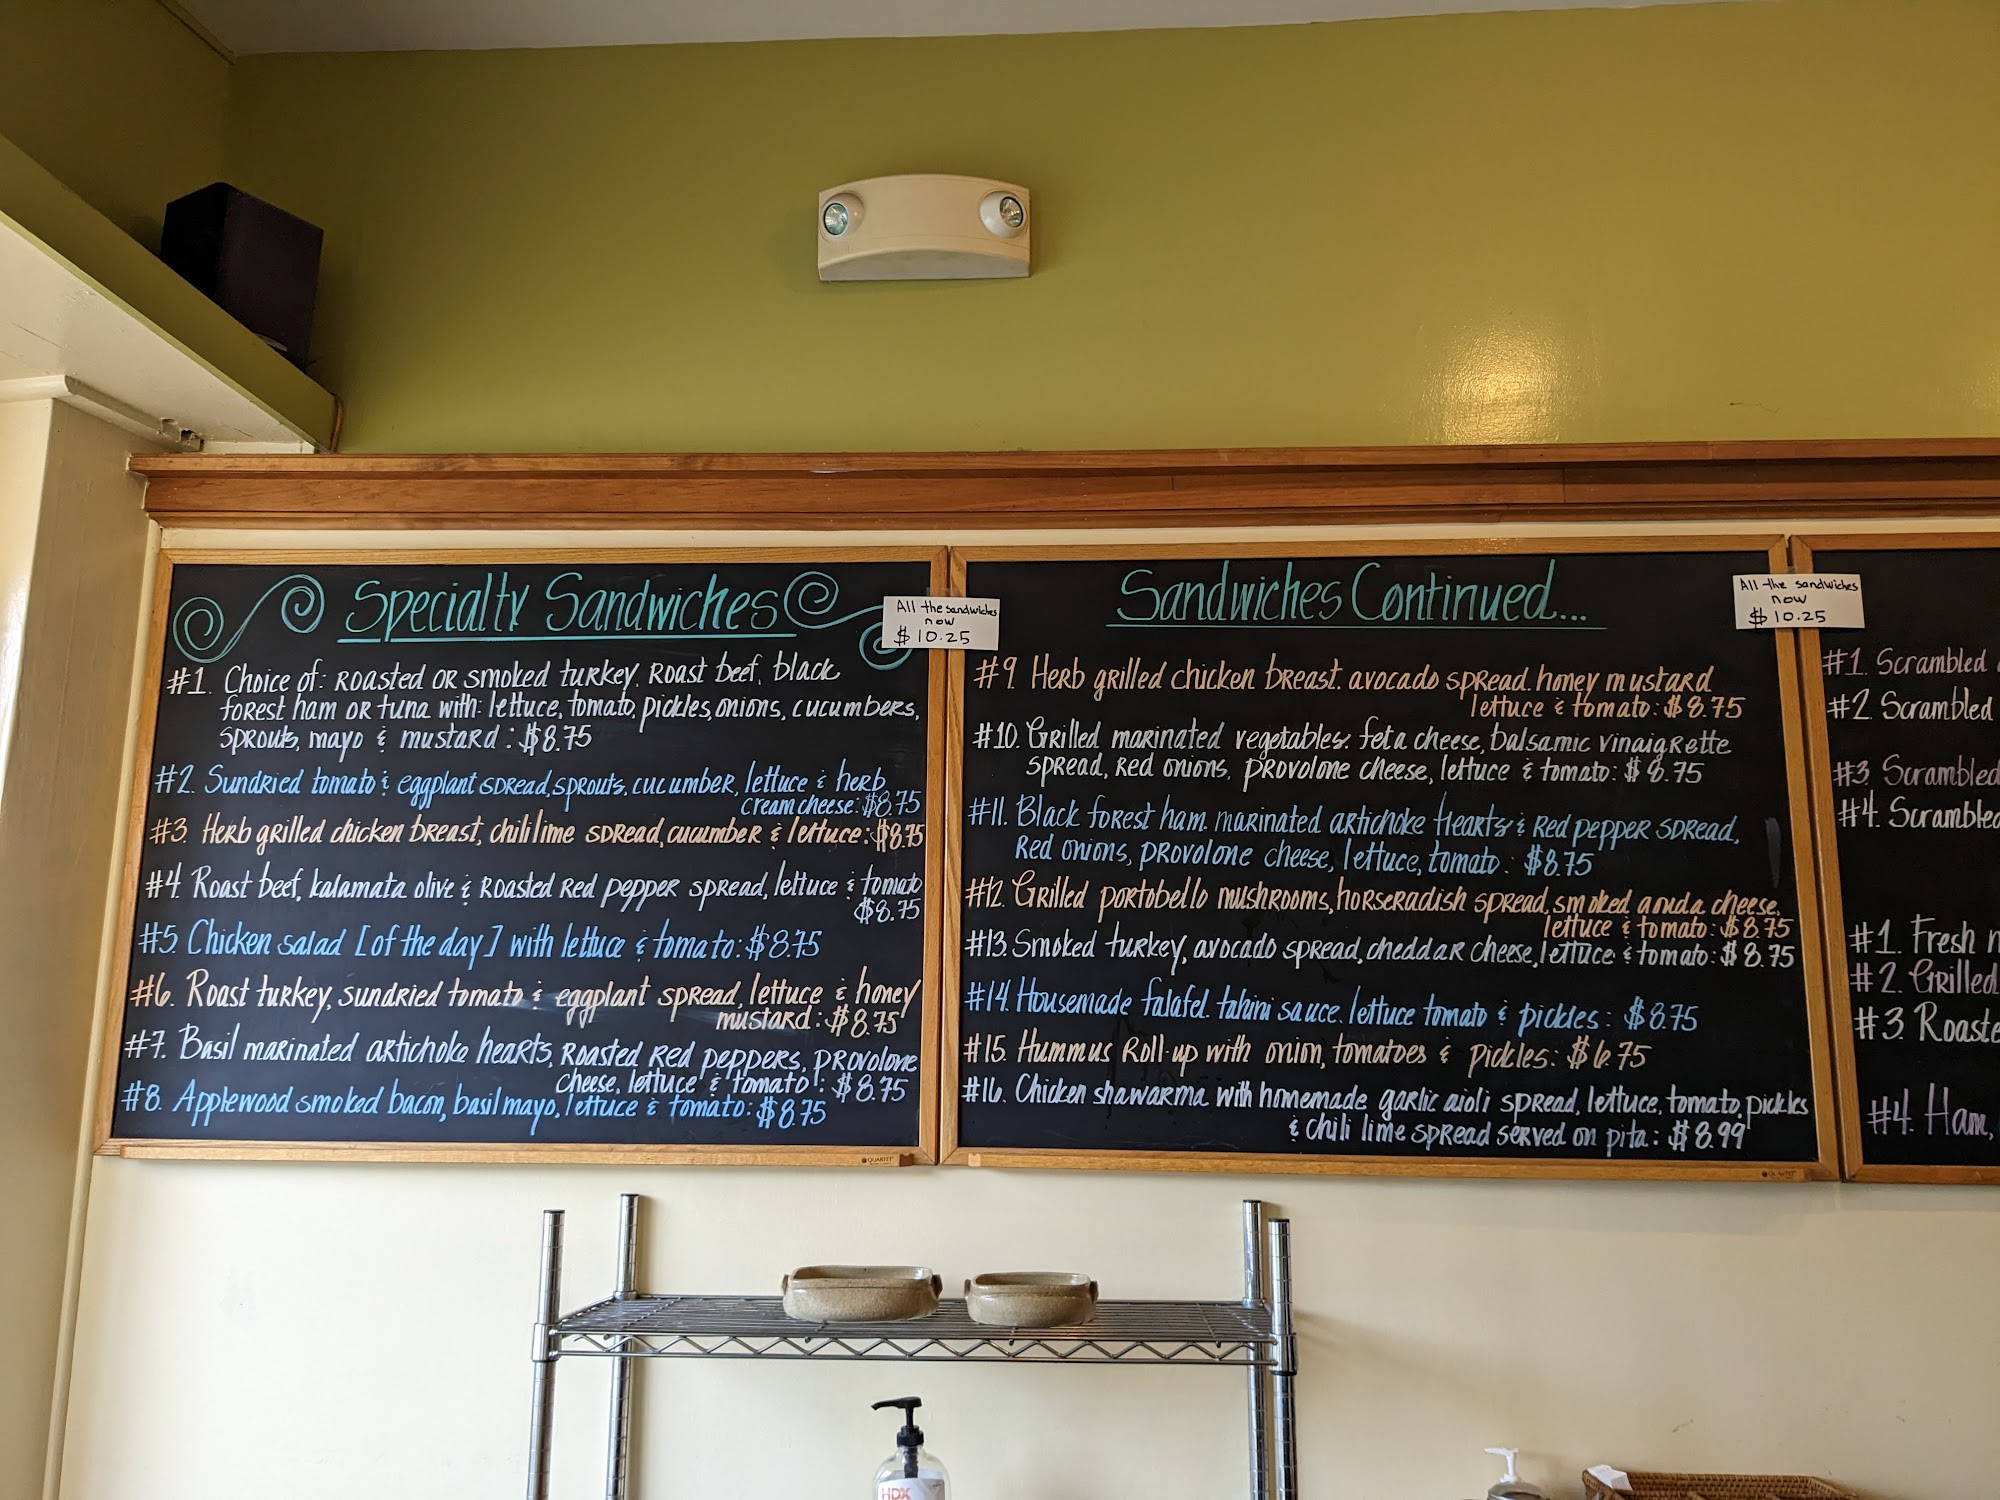 Specialty Sandwiches
All the sandwiches
now
$10.25
#1. Choice of: Roasted or smoked turkey. Roast beef, black
forest ham or tuna with: lettuce, tomato, pickles, onions, cucumbers,
sprouts, mayo & mustard: $8.75
#2. Sundried tomato & eggplant spread, sprouts, cucumber, lettuce & herb
cream cheese: $8.75
#3. Herb grilled chicken breast, chili lime spread, cucumber & lettuce: $8.75
#4. Roast beef, kalamata olive & roasted red pepper spread, lettuce & tomato
$8.75
#5. Chicken salad [of the day] with lettuce & tomato: $8.75
#6. Roast turkey, sundried tomato & eggplant spread, lettuce & honey
mustard: $8.75
#7. Basil marinated artichoke hearts, roasted red peppers, provolone
cheese, lettuce & tomato: $8.75
#8. Applewood smoked bacon, basil mayo, lettuce & tomato: $8.75
QUARTET
Sandwiches Continued...
All the sandwiches
now
$10.25
#9. Herb grilled chicken breast. avocado spread. honey mustard
lettuce & tomato: $8.75
#10. Grilled marinated vegetables. feta cheese, balsamic vinaigrette
spread, red onions, provolone cheese, lettuce & tomato: $8.75
#11. Black forest ham. marinated artichoke hearts & red pepper spread,
red onions, provolone cheese, lettuce, tomato: $8.75
#12. Grilled portobello mushrooms, horseradish spread, smoked gouda cheese,
lettuce & tomato: $8.75
#13. Smoked turkey, avocado spread, cheddar cheese, lettuce & tomato: $8.75
#14. Housemade falafel. tahini sauce. lettuce tomato & pickles: $8.75
#15. Hummus Roll-up with onion, tomatoes & pickles: $6.75
#16. Chicken shawarma with homemade garlic aioli spread, lettuce, tomato, pickles
& chili lime spread served on pita: $8.99
QUARTET
#1. Scrambled
#2. Scrambled
#3. Scrambled
#4. Scrambled
#1. Fresh
#2. Grilled
#3. Roaste
#4. Ham,
HDX